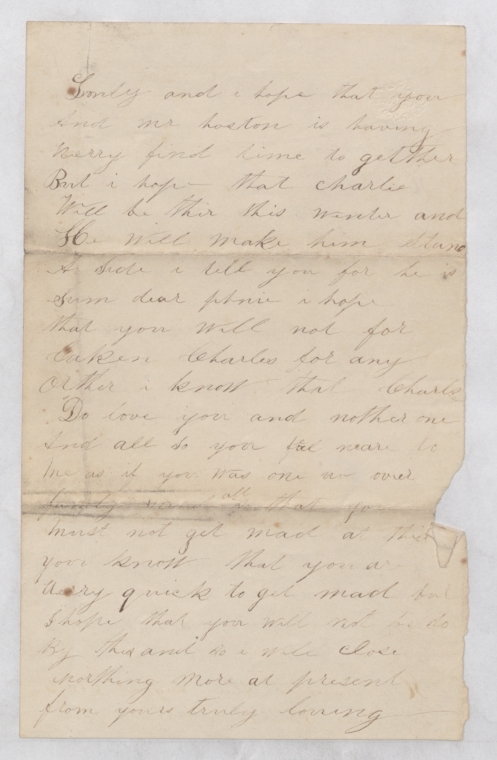 Emly and i hope that you
And mr hoston is having
Verry find time to gether
But i hope that Charlie
Will be thir this winter and
He will make him stand
A Side i tell you for he is
Sum dear i hope
that you will not for
Caken Charles for any
Orther i know that Charls
Do love you and nother one
And all so you feel neare to
me as if you was one av over
family all that you
must not get mad at this
you know that you ar
Verry quick to get mad but
I hope that you will not be so
By this and so i will Close
Northing more at present
from yours truly loving